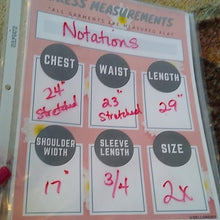 DRESS MEASUREMENTS
*ALL GARMENTS ARE MEASURED FLAT
Notations
CHEST
WAIST
LENGTH
24"
Stretched
23"
Stretched
29"
SHOULDER
WIDTH
SLEEVE
LENGTH
SIZE
17"
3/4
2X